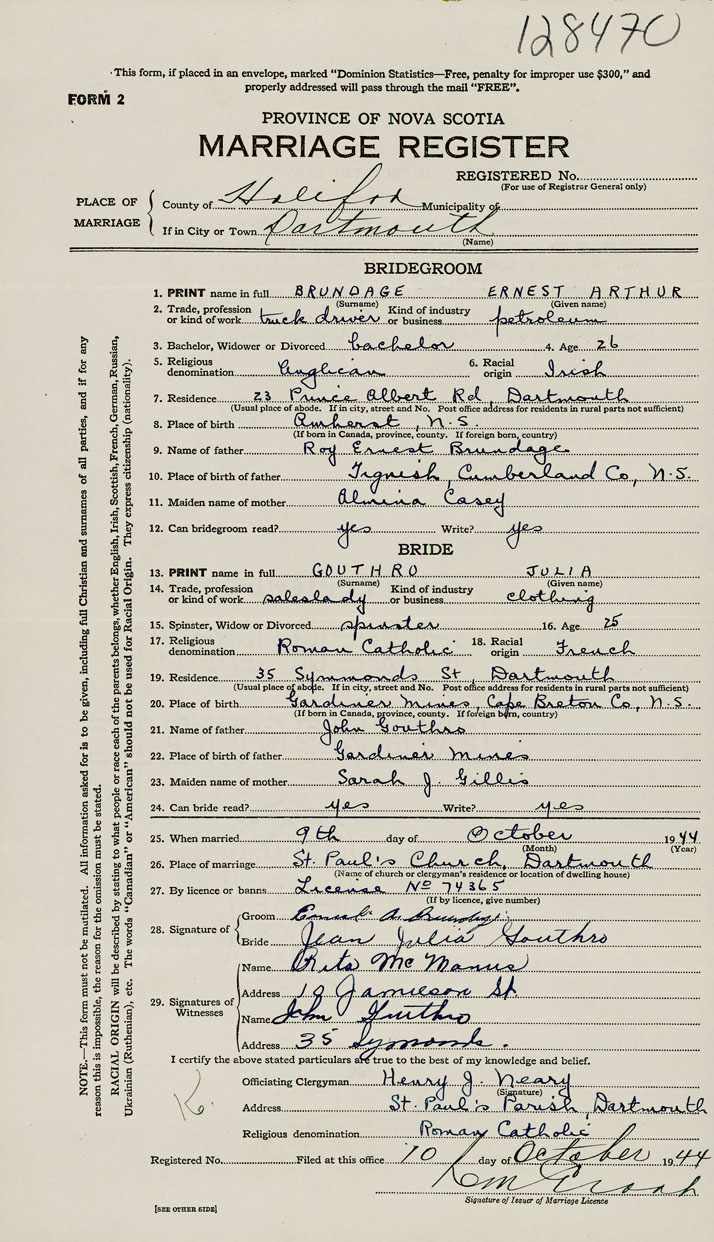 128470
This form, if placed in an envelope, marked "Dominion Statistics—Free, penalty for improper use $300," and
properly addressed will pass through the mail "FREE".
FORM 2
PROVINCE OF NOVA SCOTIA
MARRIAGE REGISTER
REGISTERED No.
(For use of Registrar General only)
PLACE OF MARRIAGE
County of Halifax Municipality of
If in City or Town Dartmouth
(Name)
BRIDEGROOM
1. PRINT name in full BRUNDAGE ERNEST ARTHUR
(Surname) (Given name)
2. Trade, profession or kind of work truck driver Kind of industry or business petroleum
3. Bachelor, Widower or Divorced bachelor 4. Age 26
5. Religious denomination Anglican 6. Racial origin Irish
7. Residence 23 Prince Albert Rd, Dartmouth
(Usual place of abode. If in city, street and No. Post office address for residents in rural parts not sufficient)
8. Place of birth Amherst, N.S.
(If born in Canada, province, county. If foreign born, country)
9. Name of father Roy Ernest Brundage
10. Place of birth of father Tignish, Cumberland Co, N.S.
11. Maiden name of mother Almina Casey
12. Can bridegroom read? yes Write? yes
BRIDE
13. PRINT name in full GOUTHRO JULIA
(Surname) (Given name)
14. Trade, profession or kind of work saleslady Kind of industry or business clothing
15. Spinster, Widow or Divorced spinster 16. Age 25
17. Religious denomination Roman Catholic 18. Racial origin French
19. Residence 35 Symmonds St, Dartmouth
(Usual place of abode. If in city, street and No. Post office address for residents in rural parts not sufficient)
20. Place of birth Gardiner Mines, Cape Breton Co, N.S.
(If born in Canada, province, county. If foreign born, country)
21. Name of father John Gouthro
22. Place of birth of father Gardiner Mines
23. Maiden name of mother Sarah J. Gillis
24. Can bride read? yes Write? yes
25. When married 9th day of October 1944
(Month) (Year)
26. Place of marriage St. Paul's Church, Dartmouth
(Name of church or clergyman's residence or location of dwelling house)
27. By licence or banns License No 74365
(If by licence, give number)
28. Signature of
Groom Ernest A. Brundage
Bride Jean Julia Gouthro
29. Signatures of Witnesses
Name Rita McManus
Address Jamieson St.
Name John Gouthro
Address 35 Symonds.
I certify the above stated particulars are true to the best of my knowledge and belief.
Officiating Clergyman Henry J. Neary
(Signature)
Address St. Paul's Parish, Dartmouth
Religious denomination Roman Catholic
Registered No. Filed at this office 10 day of October 1944
Signature of Issuer of Marriage Licence
[SEE OTHER SIDE]
NOTE.—This form must not be mutilated. All information asked for is to be given, including full Christian and surnames of all parties, and if for any
reason this is impossible, the reason for the omission must be stated.
RACIAL ORIGIN will be described by stating to what people or race each of the parents belongs, whether English, Irish, Scottish, French, German, Russian,
Ukrainian (Ruthenian), etc. The words "Canadian" or "American" should not be used for Racial Origin. They express citizenship (nationality).